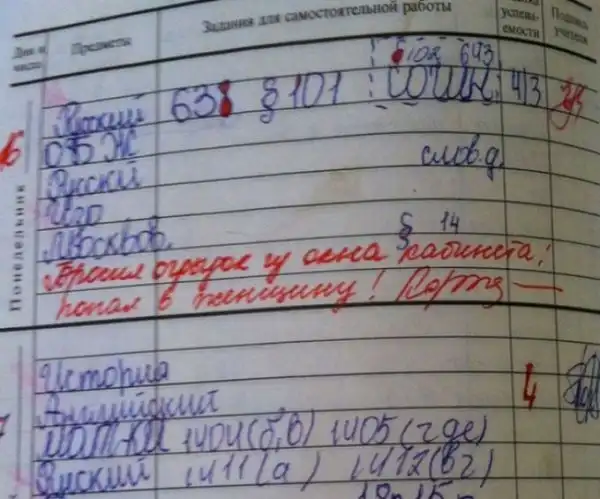 Дни и числа Предметы Задания для самостоятельной работы успева- емости Подпись учителя
§102 693
Русский 638 § 101 СОЧИН. 4/3
16 ОБЖ
Русский слов.д.
ИЗО
Москвов. § 14
Понедельник
Бросил огрызок из окна кабинета,
попал в женщину!
История 4
Английский
МАТ-КА 1404(б,в) 1405(где)
Русский 1411(а) 1412(вг)